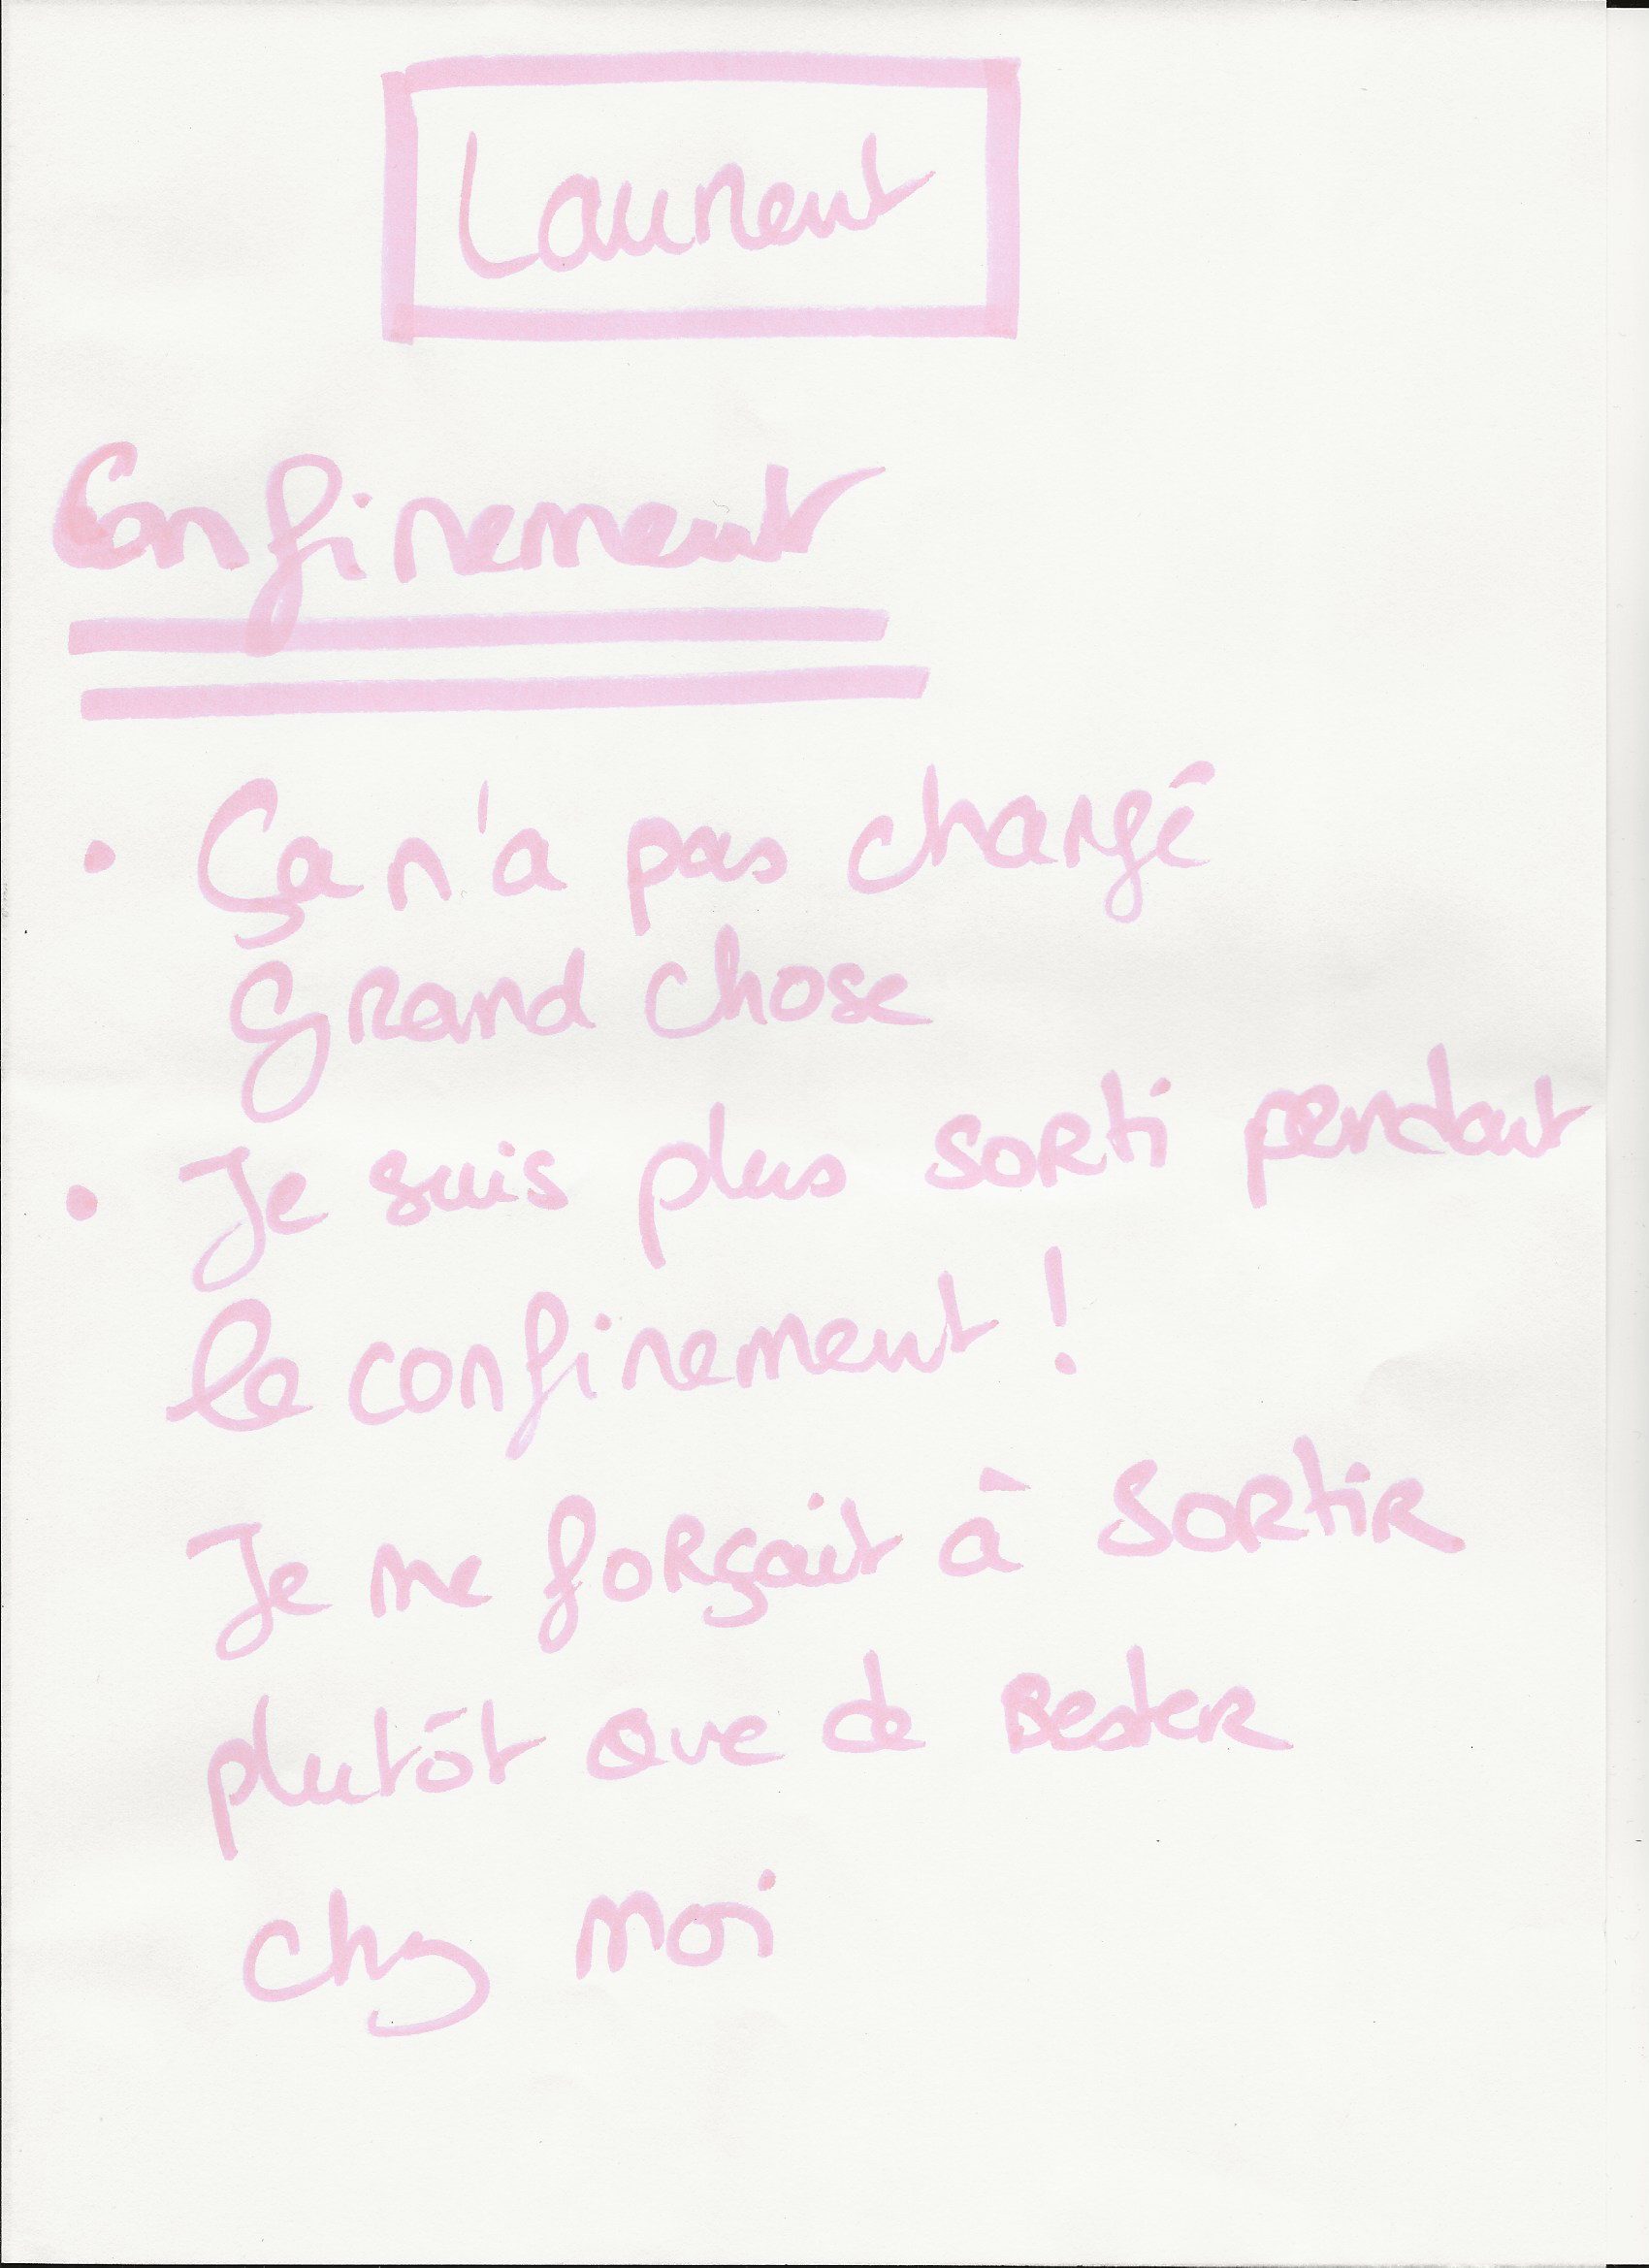 Laurent
Confinement
• Ça n'a pas changé
grand chose
• Je suis plus sorti pendant
le confinement !
Je me forçait à sortir
plutôt que de rester
chez moi